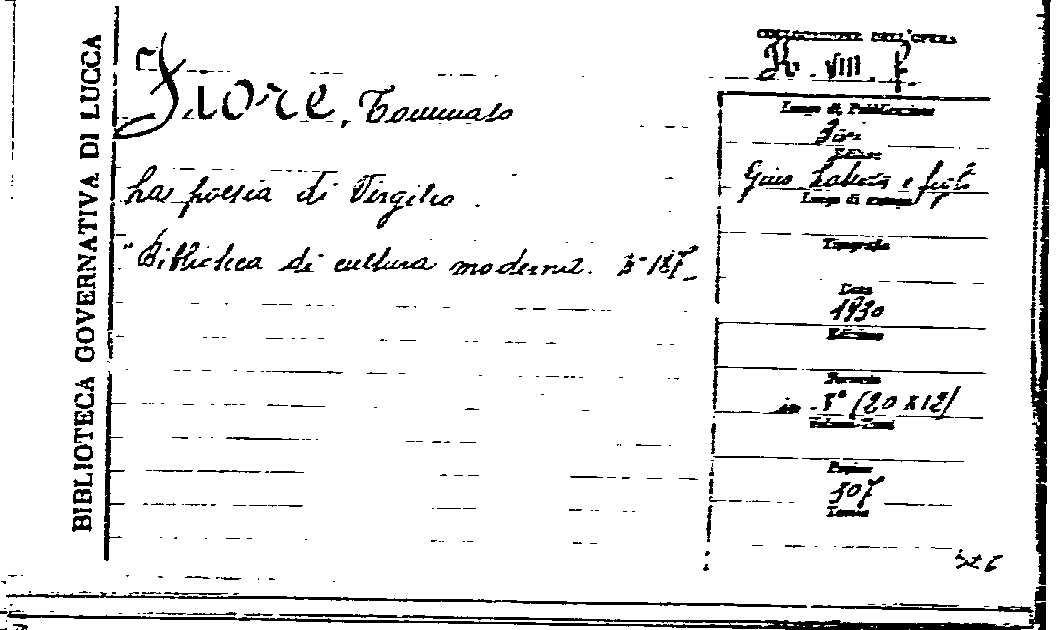 BIBLIOTECA GOVERNATIVA DI LUCCA
Fiore, Tommaso
La poesia di Virgilio.
"Biblioteca di cultura moderna.
COLLOCAZIONE DELL'OPERA
VIII
Luogo di Pubblicazione
Bari
Editore
Gius Laterza e figli
Luogo di stampa
Tipografia
Data
1930
Edizione
Formato
in - 8° (20 x 12)
Pagine
307